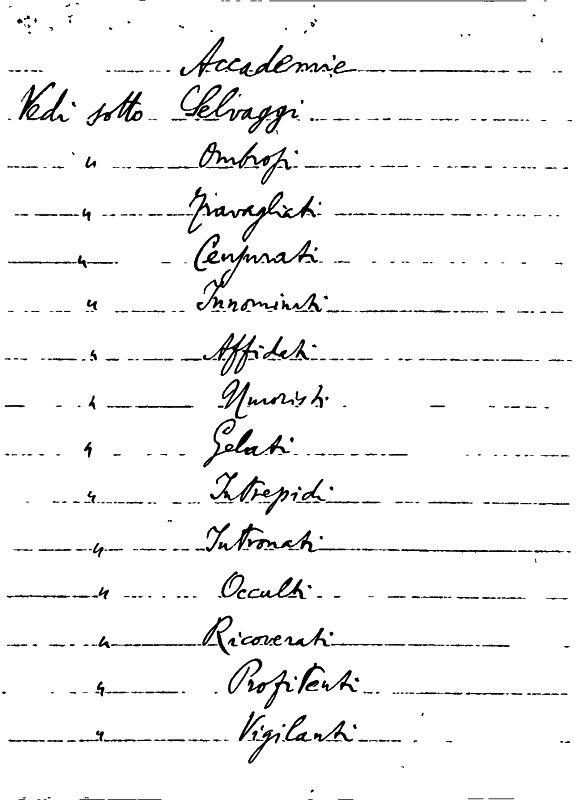 Accademie
Vedi sotto Selvaggi
" Ombrosi
" Travagliati
" Censurati
" Innominati
" Affidati
" Umoristi
" Gelati
" Intrepidi
" Intronati
" Occulti
" Ricoverati
" Profitenti
" Vigilanti